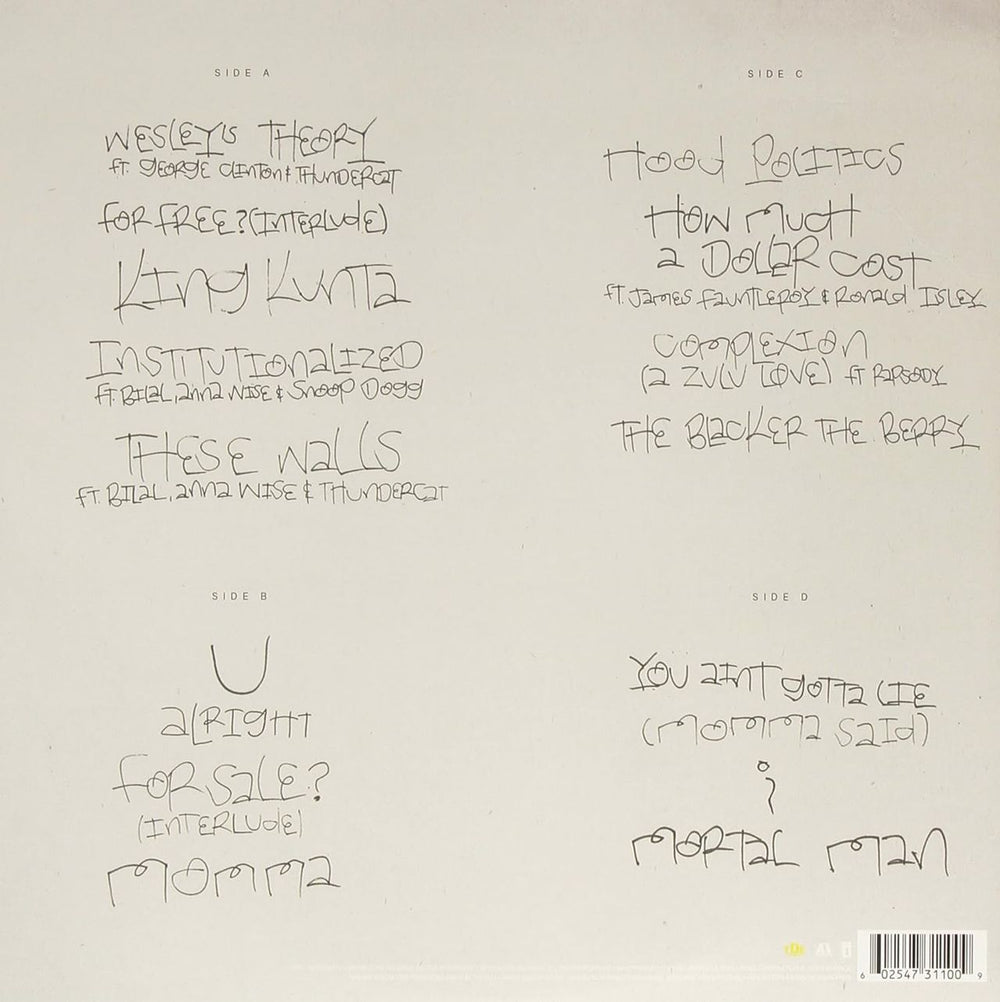 SIDE A
WESLEY'S THEORY
fT. GEORGE CLINTON & THUNDERCAT
FOR FREE? (INTERLUdE)
KING KUNTA
INSTITUTIONaLIZED
fT. BILaL, anna WISE & Snoop DOGG
THESE WaLLS
fT. BILaL, anna WISE & THUNDERCaT
SIDE B
U
aLRIGHT
foR SaLE?
(INTERLUdE)
MOMMA
SIDE C
Hood POLITICS
HOW MUCH
a DOLLaR COST
fT. James FaUnTLEROY & RonaLd ISLEY
COMPLEXION
(a ZULU LOVE) fT RaPSODY
THE BLaCKER THE BERRY
SIDE D
YOU aINT GOTTa LIE
(MOMMa SaId)
i
MORTaL Man
6 02547 31100 9